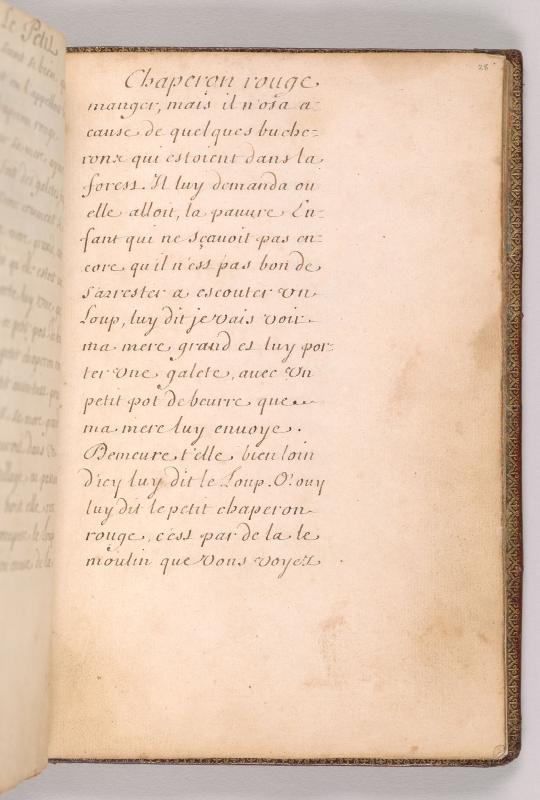 Le Petit
28
Chaperon rouge
manger, mais il n'osa a=
cause de quelques buche=
rons qui estoient dans la
forest. Il luy demanda ou
elle alloit, la pauure En=
fant qui ne sçavoit pas en=
core qu'il n'est pas bon de
s'arrester a escouter un
Loup, luy dit je vais voir
ma mere grand et luy por=
ter une galete, avec un
petit pot de beurre que
ma mere luy envoye.
Demeure t'elle bien loin
d'icy luy dit le Loup. O! ouy
luy dit le petit chaperon
rouge, c'est par de la le
moulin que vous voyez